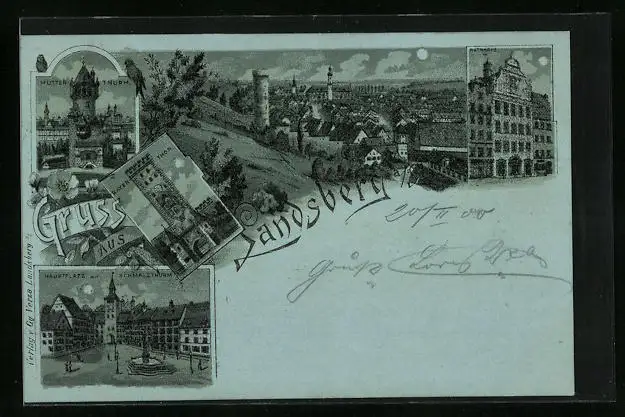 MUTTER THURM
RATHHAUS
BAYER THOR
Gruss
AUS
Landsberg a/L
20/II 00
Gruß
HAUPTPLATZ MIT SCHMALZTHURM
Verlag v. Gg Verza Landsberg a/L